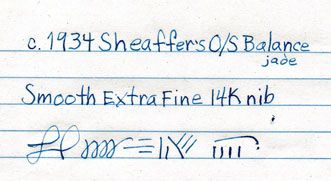 c. 1934 Sheaffers O/S Balance
jade
Smooth Extra Fine 14K nib